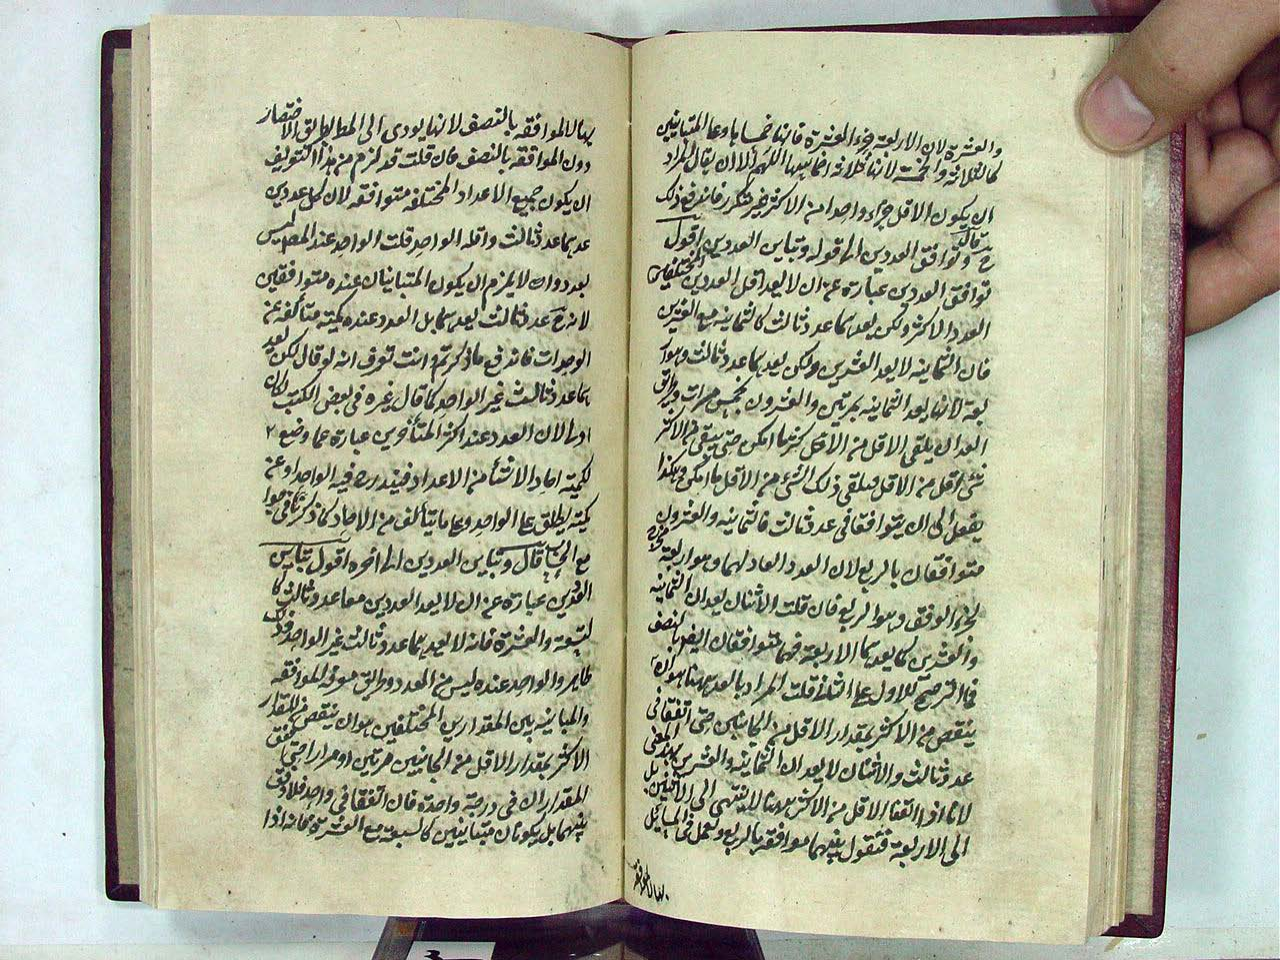 والعشرة لان الاربعة جزء العشرة فانها خمساها وعلى المتباينين
كالثلاثة والخمسة لانها ثلاثة اخماسها اللهم الا ان يقال المراد
ان يكون الاقل جزءا واحدا من الاكثر غير متكرر فاندفع ذلك
قال وتوافق العددين الى قوله وتباين العددين اقول
توافق العددين المختلفين عبارة عن ان لا يعد اقل العددين
العدد الاكثر ولكن يعدهما عدد ثالث كالثمانية مع العشرين
فان الثمانية لا يعد العشرين ولكن يعدهما عدد ثالث وهو ار
بعة لانها يعد الثمانية بمرتين والعشرون بخمس مرات وطريق
العد ان يلقى الاقل من الاكثر كم ما امكن حتى يبقى من الاكثر
شئ اقل من الاقل فيلقى ذلك الشئ من الاقل ما امكن وهكذا
يفعل الى ان يتوافقا فى عدد ثالث فالثمانية والعشرون
متوافقان بالربع لان العدد العاد لهما وهو اربعة مخرج
لجزء الوفق وهو الربع فان قلت الاثنان يعدان الثمانية
والعشرين كما يعدهما الاربعة فهما متوافقان ايضا بالنصف
فما الترجيح للاول على الثانى قلت المراد بالعد ههنا هو ان
ينتقص من الاكثر بمقدار الاقل من الجانبين حتى اتفقا فى
عدد ثالث والاثنان لا يعدان الثمانية والعشرين بهذا المعنى
لانا اذا القينا الاقل من الاكثر ههنا لا ينتهى الى الاثنين بل
الى الاربعة فنقول بينهما موافقة بالربع ونعمل فى المسائل
بها لا الموافقة
بها لا الموافقة بالنصف لانها يودى الى المط بطريق الاختصار
دون الموافقة بالنصف فان قلت قد لزم من هذا التعريف
ان يكون جميع الاعداد المختلفة متوافقة لان كل عددين
عدهما عدد ثالث واقله الواحد قلت الواحد عند المص ليس
بعدد وان لا يلزم ان يكون المتباينان عنده متوافقين
لانه عدد ثالث يعدهما بل العدد عنده كمية متألفة من
الوحدات فاندفع ما ذكرتم وانت تعرف انه لو قال لكن يعد
هما عدد ثالث غير الواحد كما قال غيره فى بعض الكتب لكان
اولى لان العدد عند اكثر المتأخرين عبارة عما وضع
لكمية احاد الاشياء من الاعداد فيندرج فيه الواحد او عن
كمية يطلق على الواحد وعلى ما يتألف من الاحاد كما ذكر
مع الحساب قال وتباين العددين الى اخره اقول تباين
العددين عبارة عن ان لا يعد العددين معا عدد ثالث كا
لتسعة والعشرة فانه لا يعدهما عدد ثالث غير الواحد وذلك
ظاهر والواحد عنده ليس من العدد وطريق معرفة الموافقة
والمباينة بين المقدارين المختلفين هو ان ينتقص من المقدار
الاكثر بمقدار الاقل من الجانبين مرتين او مرارا حتى اتفق
المقداران فى درجة واحدة فان اتفقا فى واحد فلا وفق
بينهما بل يكونان متباينين كالسبعة مع العشرة فانه اذا